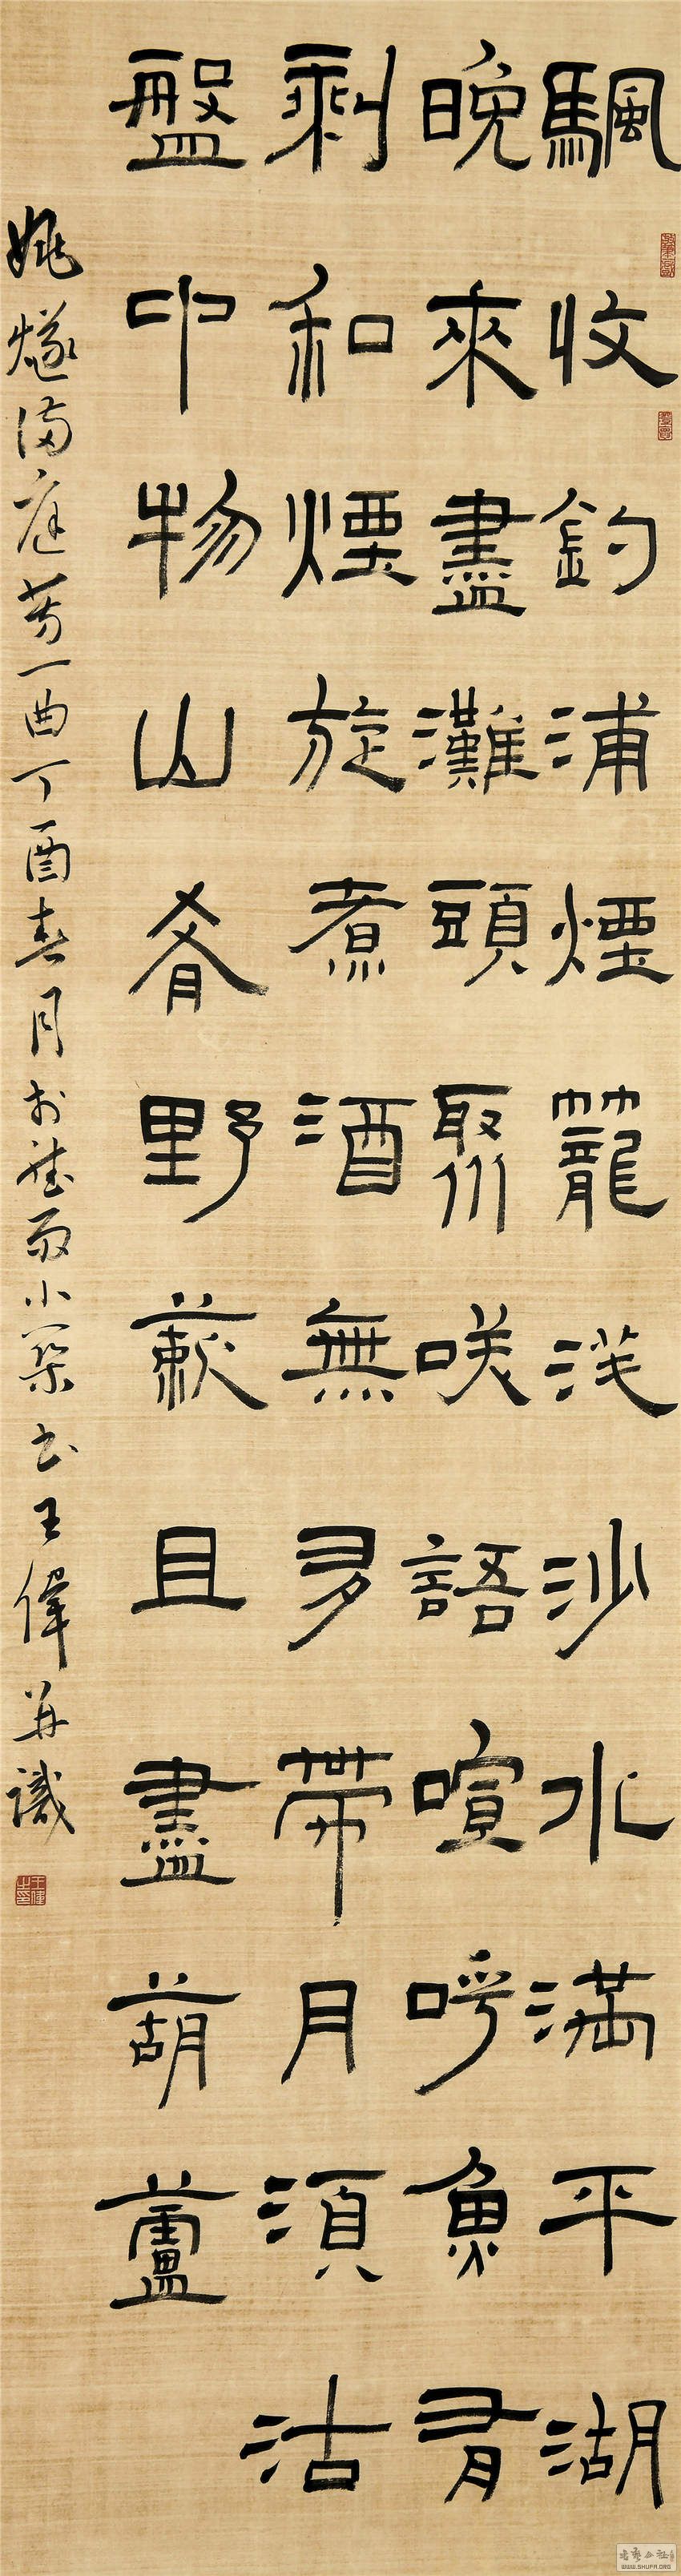 颿收釣浦煙籠淺沙水滿平湖
晚來盡灘頭聚咲語喧呼魚有
剩和煙旋煮酒無多帶月須沽
盤中物山肴野蔌且盡葫蘆
姚燧滿庭芳一曲丁酉春月於聽雨小築書王偉并識
王偉之印
WWW.SHUFA.ORG